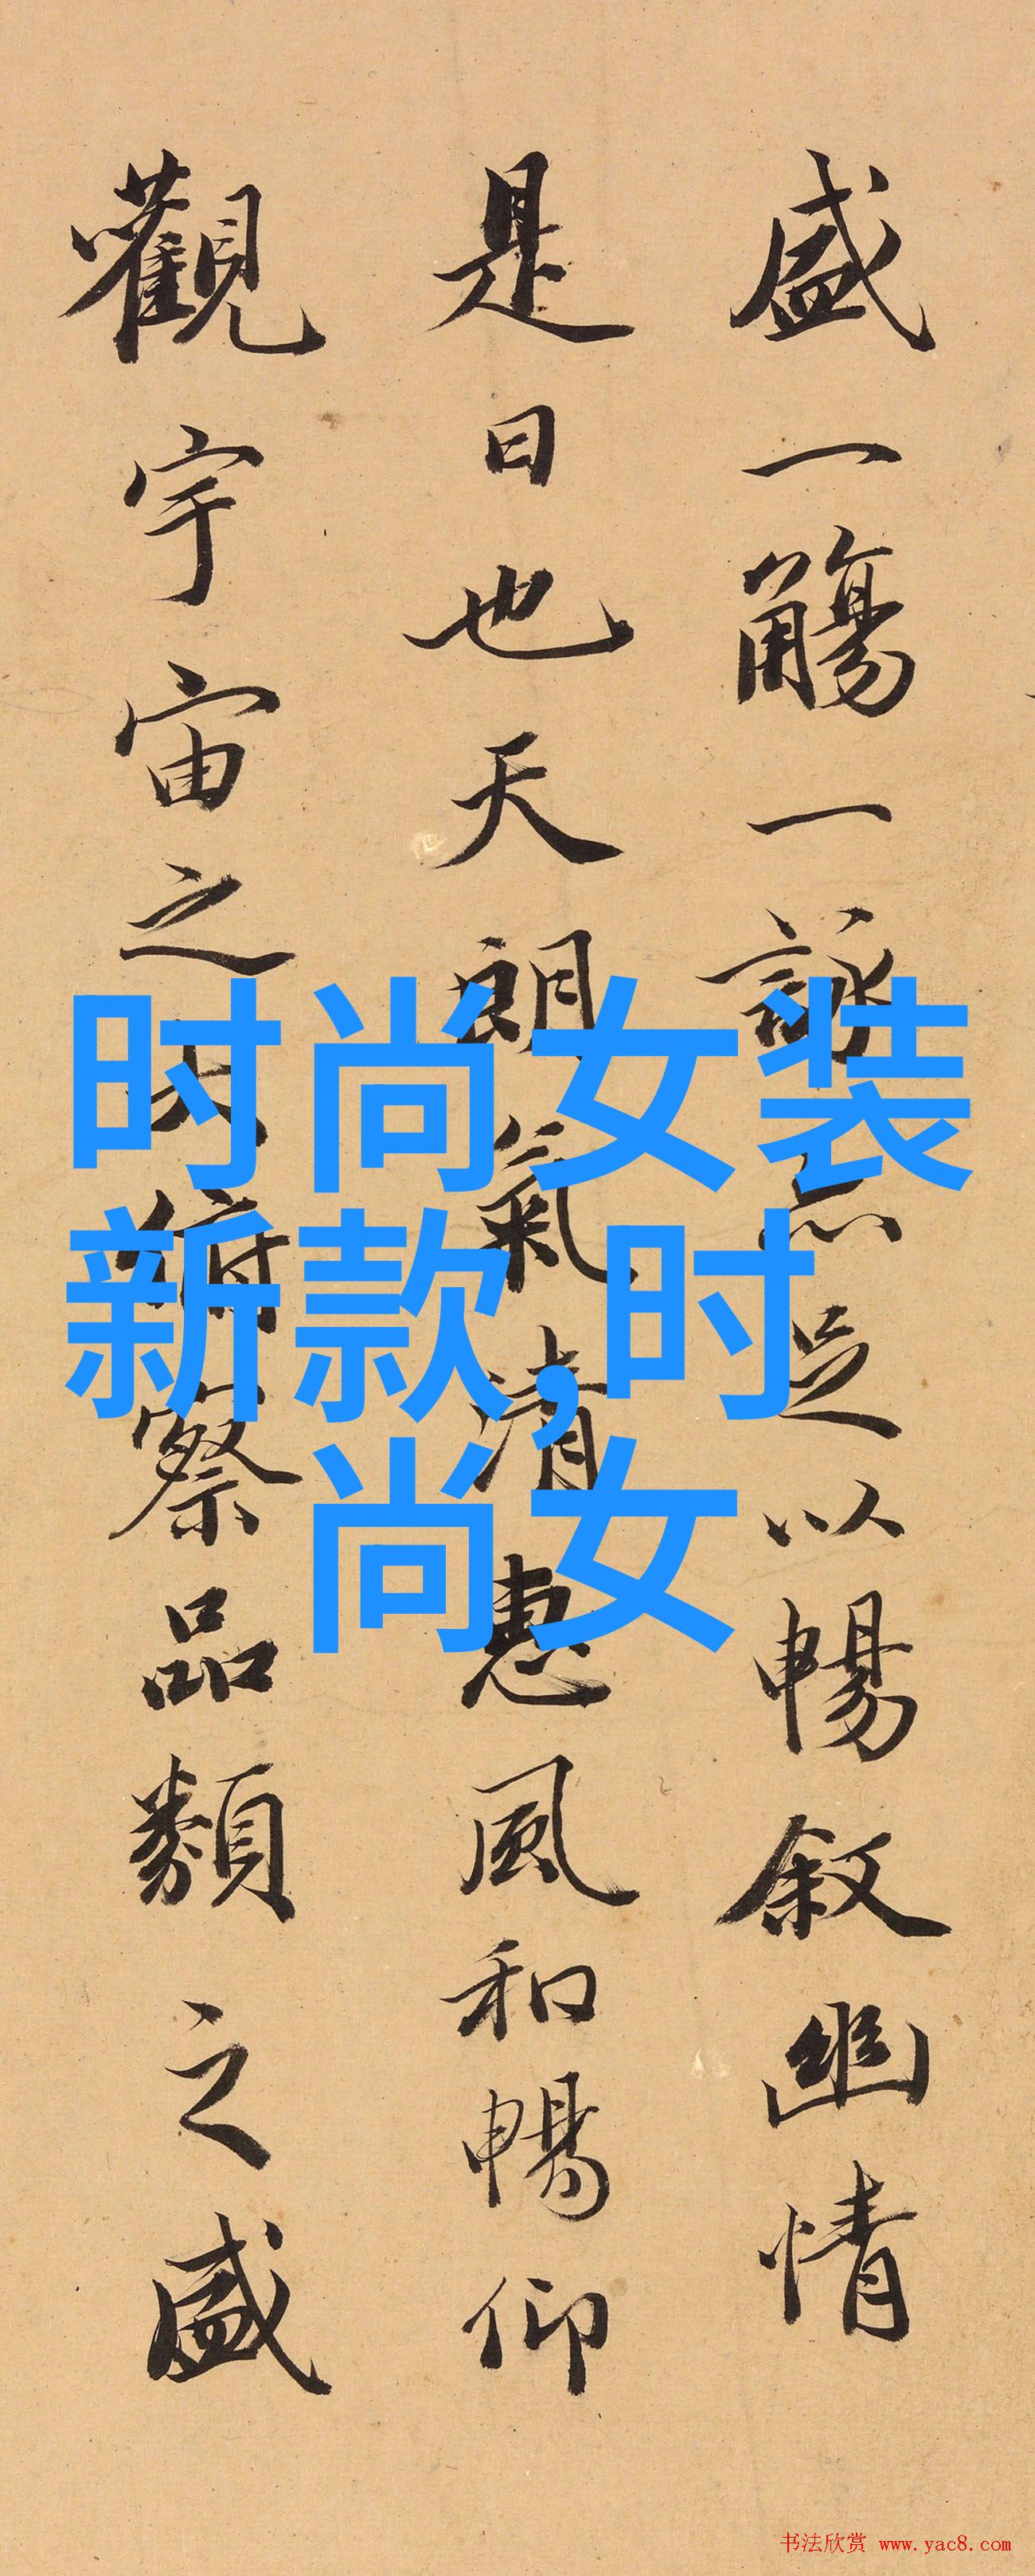 盛一觴一詠亦足以暢敘幽情
是日也天朗氣清惠風和暢仰
觀宇宙之大俯察品類之盛
时尚女装
新款,时
尚女
书法欣赏 www.yac8.com